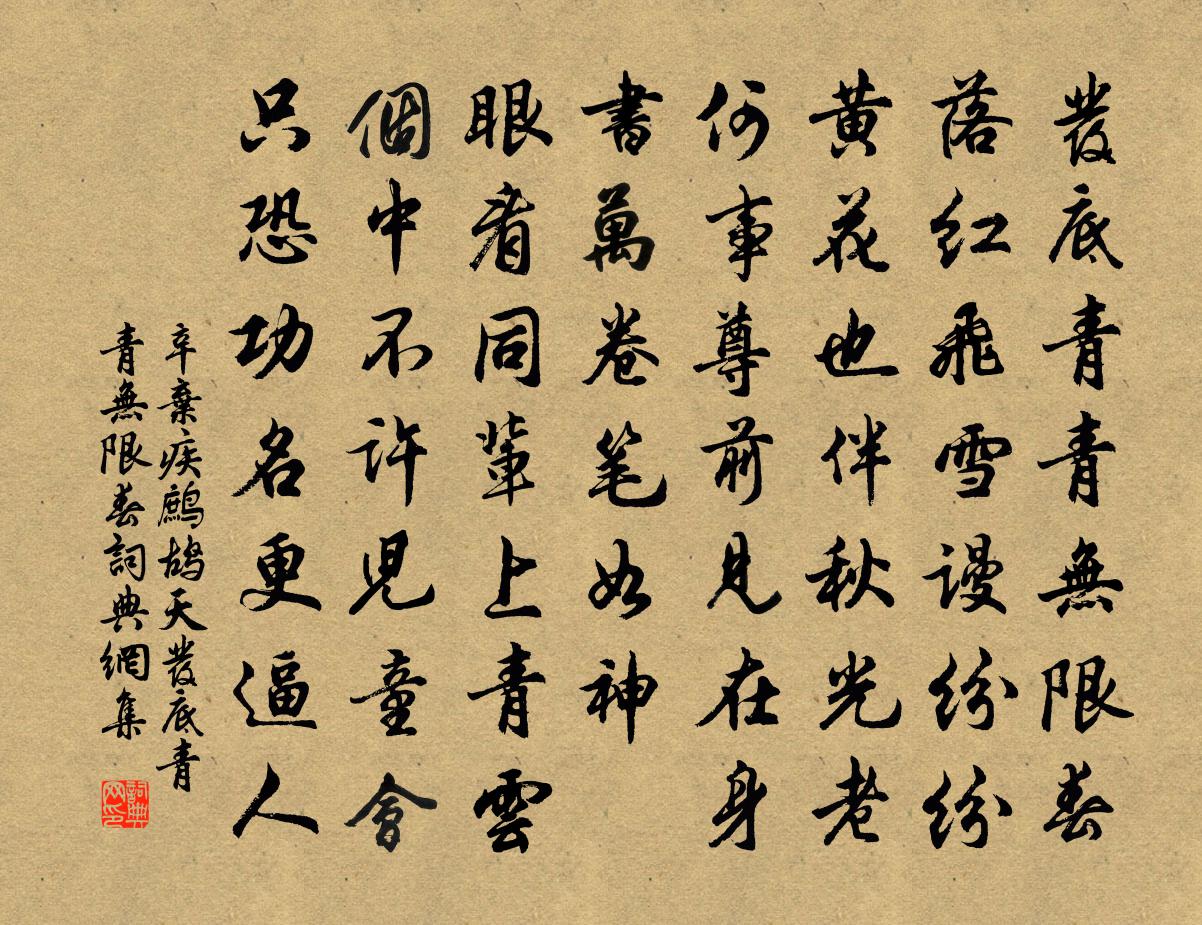 發底青青無限春
落紅飛雪謾紛紛
黃花也伴秋光老
何事尊前見在身
書萬卷笔如神
眼看同輩上青雲
個中不許兒童會
只恐功名更逼人
辛棄疾鷓鴣天發底青
青無限春詞典網集
詞典
网印